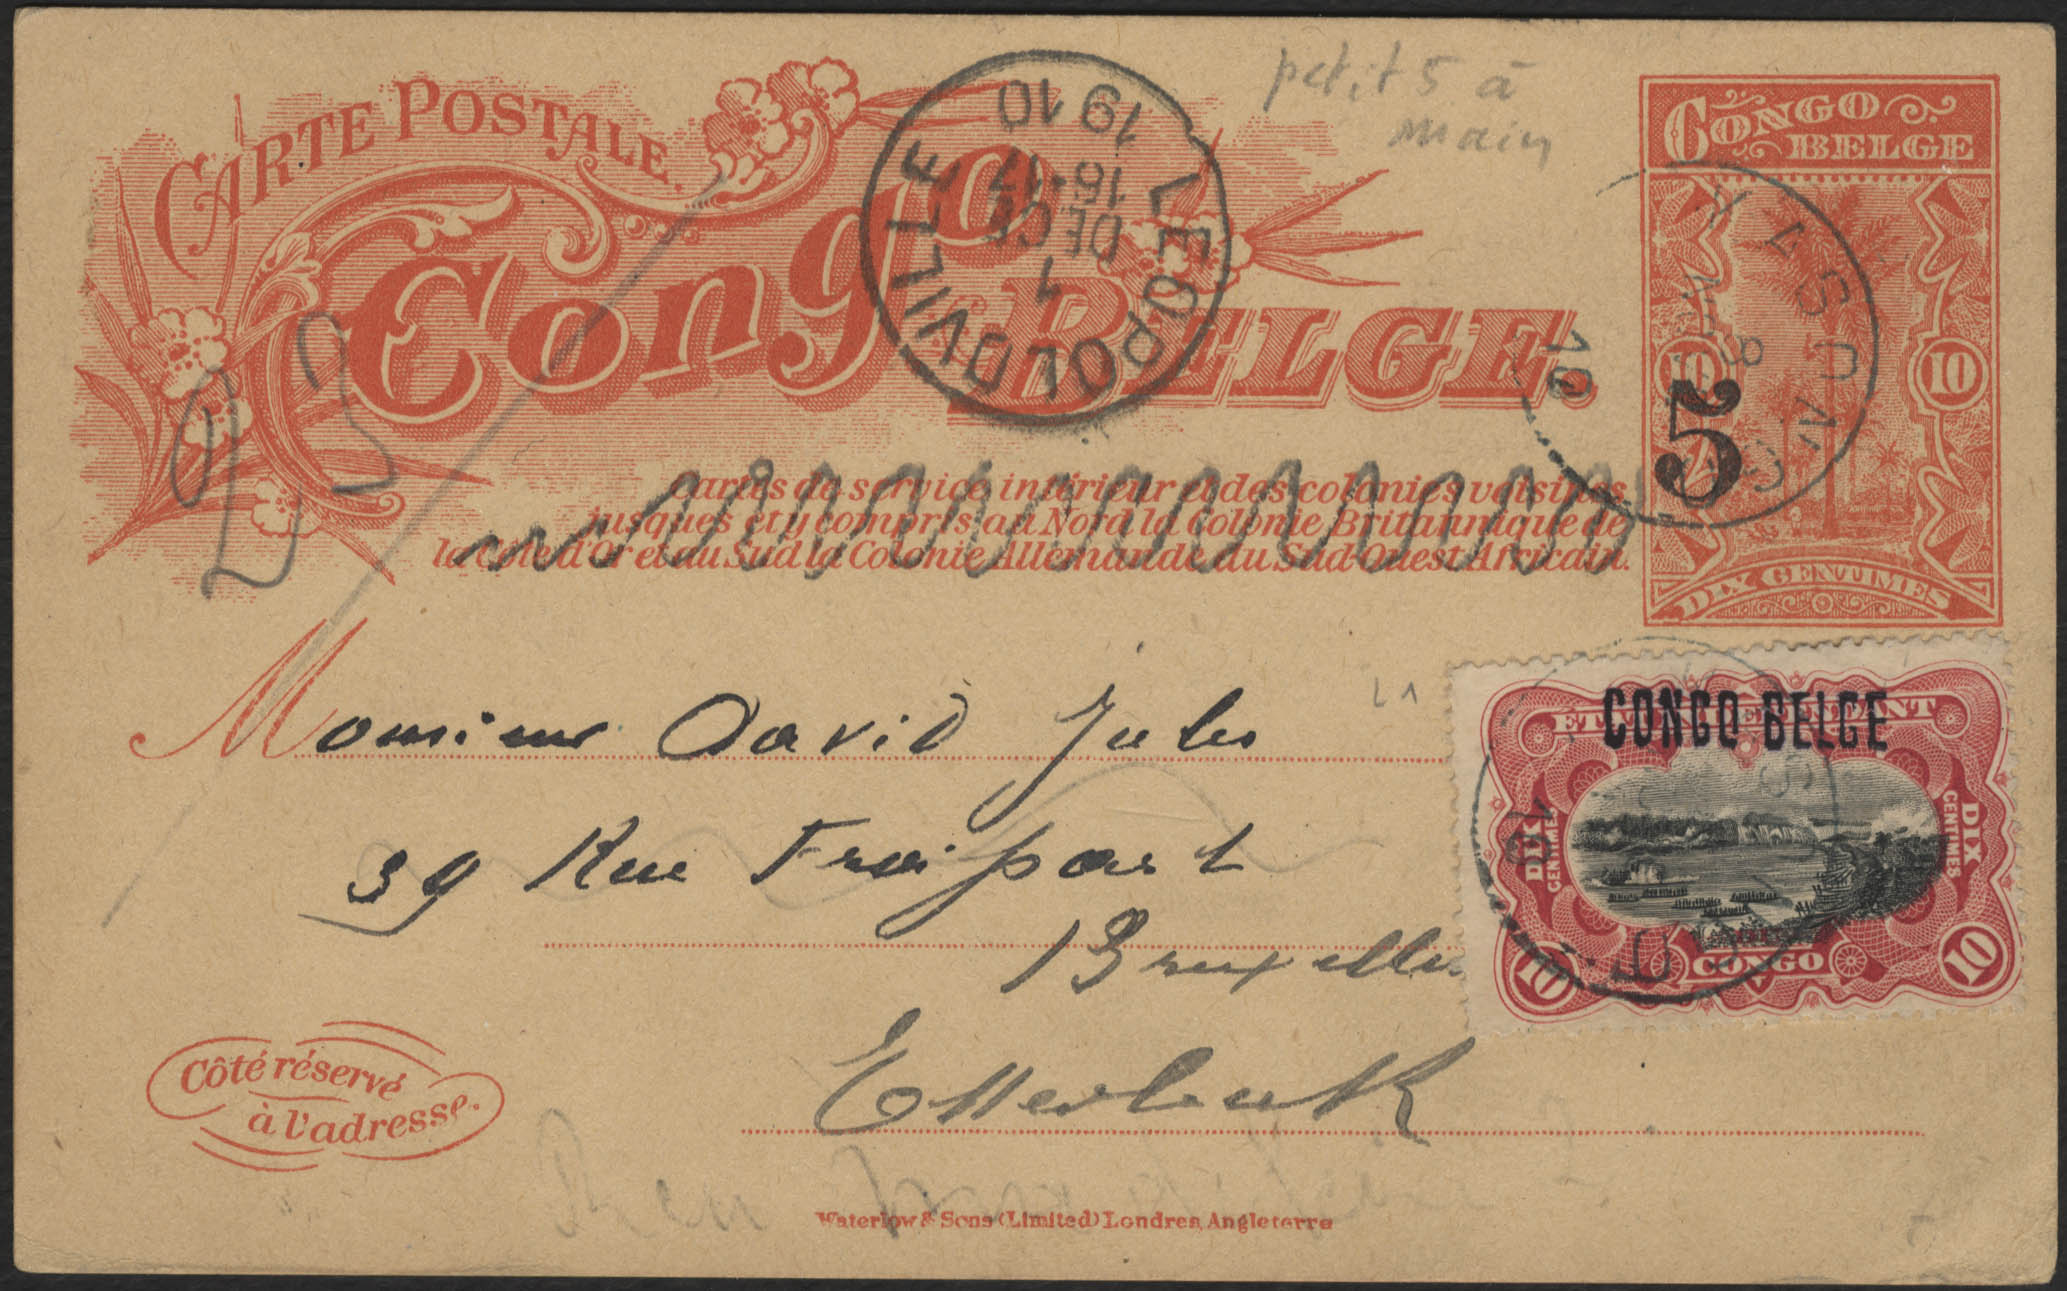 CARTE POSTALE.
Congo
BELGE.
LEOPOLDVILLE
1
DECE
16-17
1910
petit 5 à
main
CONGO
BELGE
KASONGO
8
10
10 10
5
DIX CENTIMES
23
Cartes de service intérieur et des colonies voisines
jusques et y compris au Nord la Colonie Britannique de
la Côte d'Or et au Sud la Colonie Allemande du Sud-Ouest Africain.
Monsieur David Jules
39 Rue Froissart
Bruxelles
Etterbeek
CONGO BELGE
ETAT INDEPENDANT
DIX
CENTIMES
DIX
CENTIMES
10 CONGO 10
Côté réservé
à l'adresse.
Waterlow & Sons (Limited) Londres, Angleterre